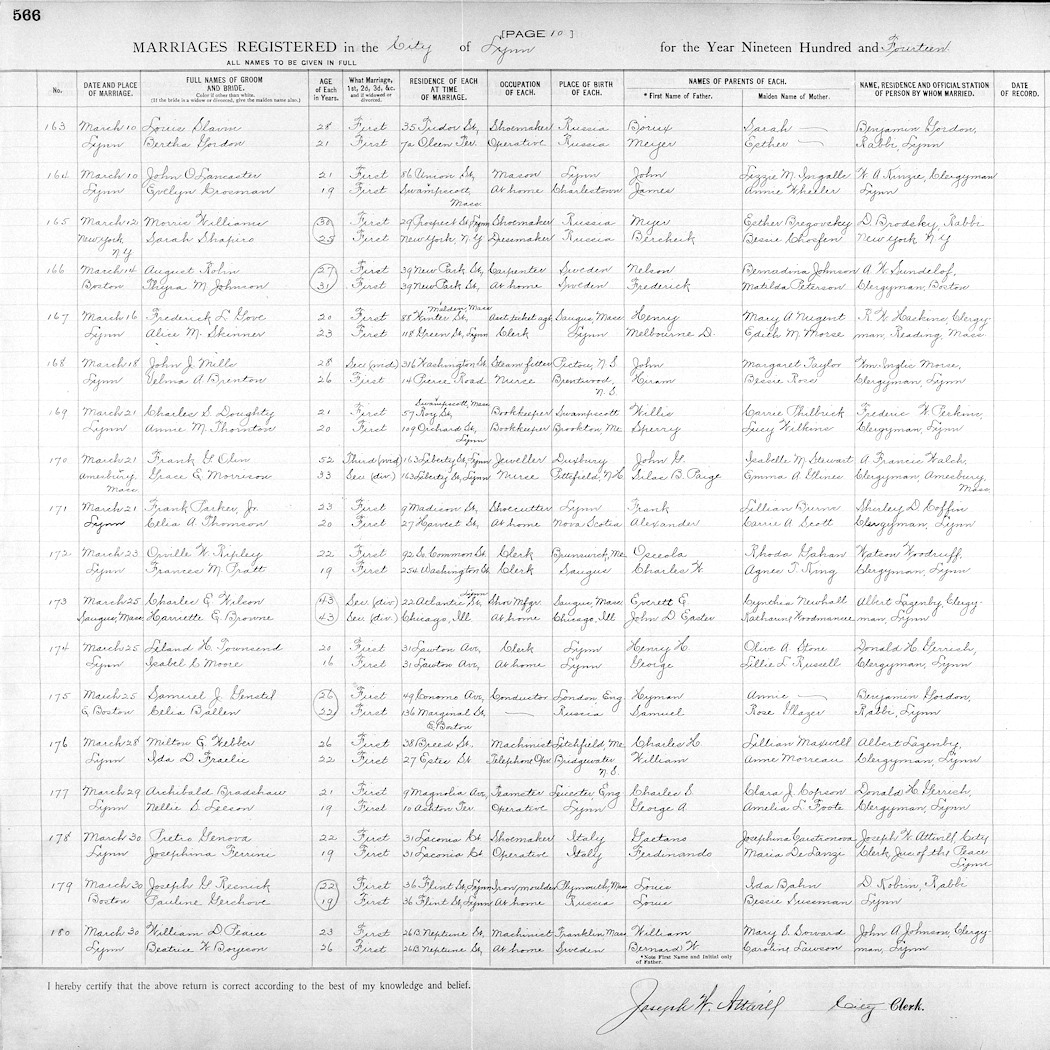 566
[PAGE 10 ]
MARRIAGES REGISTERED in the City of Lynn for the Year Nineteen Hundred and Fourteen
ALL NAMES TO BE GIVEN IN FULL
No. DATE AND PLACE OF MARRIAGE. FULL NAMES OF GROOM AND BRIDE. Color if other than white. (If the bride is a widow or divorced, give the maiden name also.) AGE of Each in Years. What Marriage, 1st, 2d, 3d, &c. and if widowed or divorced. RESIDENCE OF EACH AT TIME OF MARRIAGE. OCCUPATION OF EACH. PLACE OF BIRTH OF EACH. NAMES OF PARENTS OF EACH. * First Name of Father. Maiden Name of Mother. NAME, RESIDENCE AND OFFICIAL STATION OF PERSON BY WHOM MARRIED. DATE OF RECORD.
163 March 10 Louis Slavin 28 First 35 Tudor St, Shoemaker Russia Sarah — Benjamin Gordon,
Lynn Bertha Gordon 21 First 72 Olsen Ter. Operative Russia Meyer Esther — Rabbi, Lynn
164 March 10 John O Lancaster 21 First 86 Union St, Mason Lynn John Lizzie M. Ingalls W A Kinzie, Clergyman
Lynn Evelyn Crosman 19 First Swampscott, At home Charlestown James Annie Wheeler Lynn
Mass.
165 March 12 Morris Williams 30 First 29 Prospect St, Lynn Shoemaker Russia Myer Esther Bregovsky D. Brodsky, Rabbi
New York Sarah Shapiro 25 First New York, N.Y Dressmaker Russia Bercheik Bessie Chosfen New York N.Y
N.Y
166 March 14 August Rohn 27 First 39 New Park St, Carpenter Sweden Nelson Bernadina Johnson A. W. Sundelof,
Boston Thyra M. Johnson 31 First 39 New Park St, At home Sweden Frederick Matilda Peterson Clergyman, Boston
Malden, Mass
167 March 16 Frederick L. Gove 20 First 88 Winter St, Asst ticket agt Saugus, Mass. Henry Mary A Nugent R. W. Haskins, Clergy-
Lynn Alice M. Skinner 23 First 118 Green St, Lynn Clerk Lynn Melbourne D. Edith M. Morse man, Reading, Mass
168 March 18 John J. Mills 28 Sec (wid) 316 Washington St. Steam fitter Pictou, N.S. John Margaret Taylor Wm. Inglis Morse,
Lynn Velma A Brenton 26 First 14 Pierce Road Nurse Brentwood, Hiram Bessie Rose Clergyman, Lynn
N.S.
Swampscott, Mass
169 March 21 Charles S. Doughty 21 First 57 Roy St, Bookkeeper Swampscott Willis Carrie Philbrick Frederic W. Perkins,
Lynn Annie M. Thornton 20 First 109 Orchard St, Bookkeeper Brookton, Me. Sperry Lucy Wilkins Clergyman, Lynn
Lynn
170 March 21 Frank G. Olin 52 Third (wid) 163 Liberty St, Lynn Jeweller Duxbury John G. Isabelle M. Stewart A. Francis Walch,
Amesbury, Grace E. Morrison 33 Sec (div) 163 Liberty St, Lynn Nurse Pittsfield, N.H. Silas B. Paige Emma A. Glines Clergyman, Amesbury,
Mass Mass.
171 March 21 Frank Parker, Jr. 23 First 9 Madison St, Shoecutter Lynn Frank Lillian Burns Shirley D. Coffin
Lynn Celia A. Thomson 20 First 27 Harvest St, At home Nova Scotia Alexander Carrie A. Scott Clergyman, Lynn
172 March 23 Orville W. Ripley 22 First 92 So. Common St. Clerk Brunswick, Me. Osceola Rhoda Gahan Watson Woodruff,
Lynn Frances M. Pratt 19 First 254 Washington St. Clerk Saugus Charles W. Agnes T. King Clergyman, Lynn
Lynn
173 March 25 Charles E. Wilson 43 Sec. (div) 22 Atlantic St, Shoe Mfgr. Saugus, Mass. Everett E. Cynthia Newhall Albert Lazenby, Clergy-
Saugus, Mass. Harriette E. Browne 43 Sec (div) Chicago, Ill At home Chicago, Ill John D. Easter Katharine Woodmancee man, Lynn
174 March 25 Leland H. Townsend 20 First 31 Lawton Ave, Clerk Lynn Henry H. Olive A Stone Donald H. Gerrish,
Lynn Isabel L. Moore 16 First 31 Lawton Ave, At home Lynn George Lillie L. Russell Clergyman, Lynn
175 March 25 Samuel J. Genstil 26 First 49 Conomo Ave, Conductor London Eng Hyman Annie — Benjamin Gordon,
E Boston Celia Ballen 22 First 136 Marginal St. — Russia Samuel Rose Glazer Rabbi, Lynn.
E. Boston
176 March 28 Milton E. Webber 26 First 38 Breed St. Machinist Litchfield, Me. Charles H. Lillian Maxwell Albert Lazenby,
Lynn Ida D. Fraelic 22 First 27 Estes St. Telephone Opr. Bridgewater William Anne Morreau Clergyman, Lynn
N.S.
177 March 29 Archibald Bradshaw 21 First 9 Magnolia Ave, Teamster Leicester, Eng Charles S Clara J. Copson Donald H. Gerrish,
Lynn Nellie S. Leeson 19 First 10 Ashton Ter. Operative Lynn George A Amelia L Foote Clergyman, Lynn
178 March 30 Pietro Genova 22 First 31 Laconia Ct Shoemaker Italy Gaetano Josephina Joseph W. Attwill, City
Lynn Josephina Ferrini 19 First 31 Laconia Ct Operative Italy Ferdinando Maria De Lanzi Clerk, Jus of the Peace
Lynn
179 March 30 Joseph G. Resnick 22 First 36 Flint St, Lynn Iron moulder Plymouth, Mass Louis Ida Bahn D. Kobrin, Rabbi
Boston Pauline Gerchove 19 First 36 Flint St, Lynn At home Russia Louis Bessie Sussman Lynn
180 March 30 William D. Pearce 23 First 26B Neptune St, Machinist Franklin, Mass William Mary S. Soward John A. Johnson, Clergy-
Lynn Beatrice W. Boryeson 26 First 26B Neptune St, At home Sweden Bernard W Caroline Lawson man, Lynn
*Note First Name and Initial only of Father.
I hereby certify that the above return is correct according to the best of my knowledge and belief.
Joseph W. Attwill City Clerk.